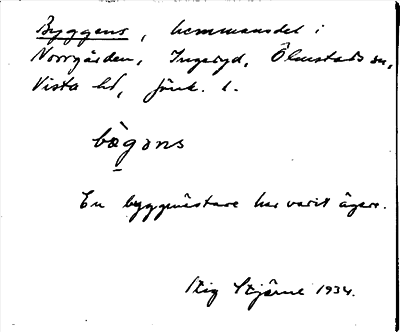 Byggens, hemmansdel i
Norrgården, Ingaryd, Ölmstads sn,
Vista hd, Jönk. l.
bògəns
En byggmästare har varit ägare.
Stig Stjärne 1934.